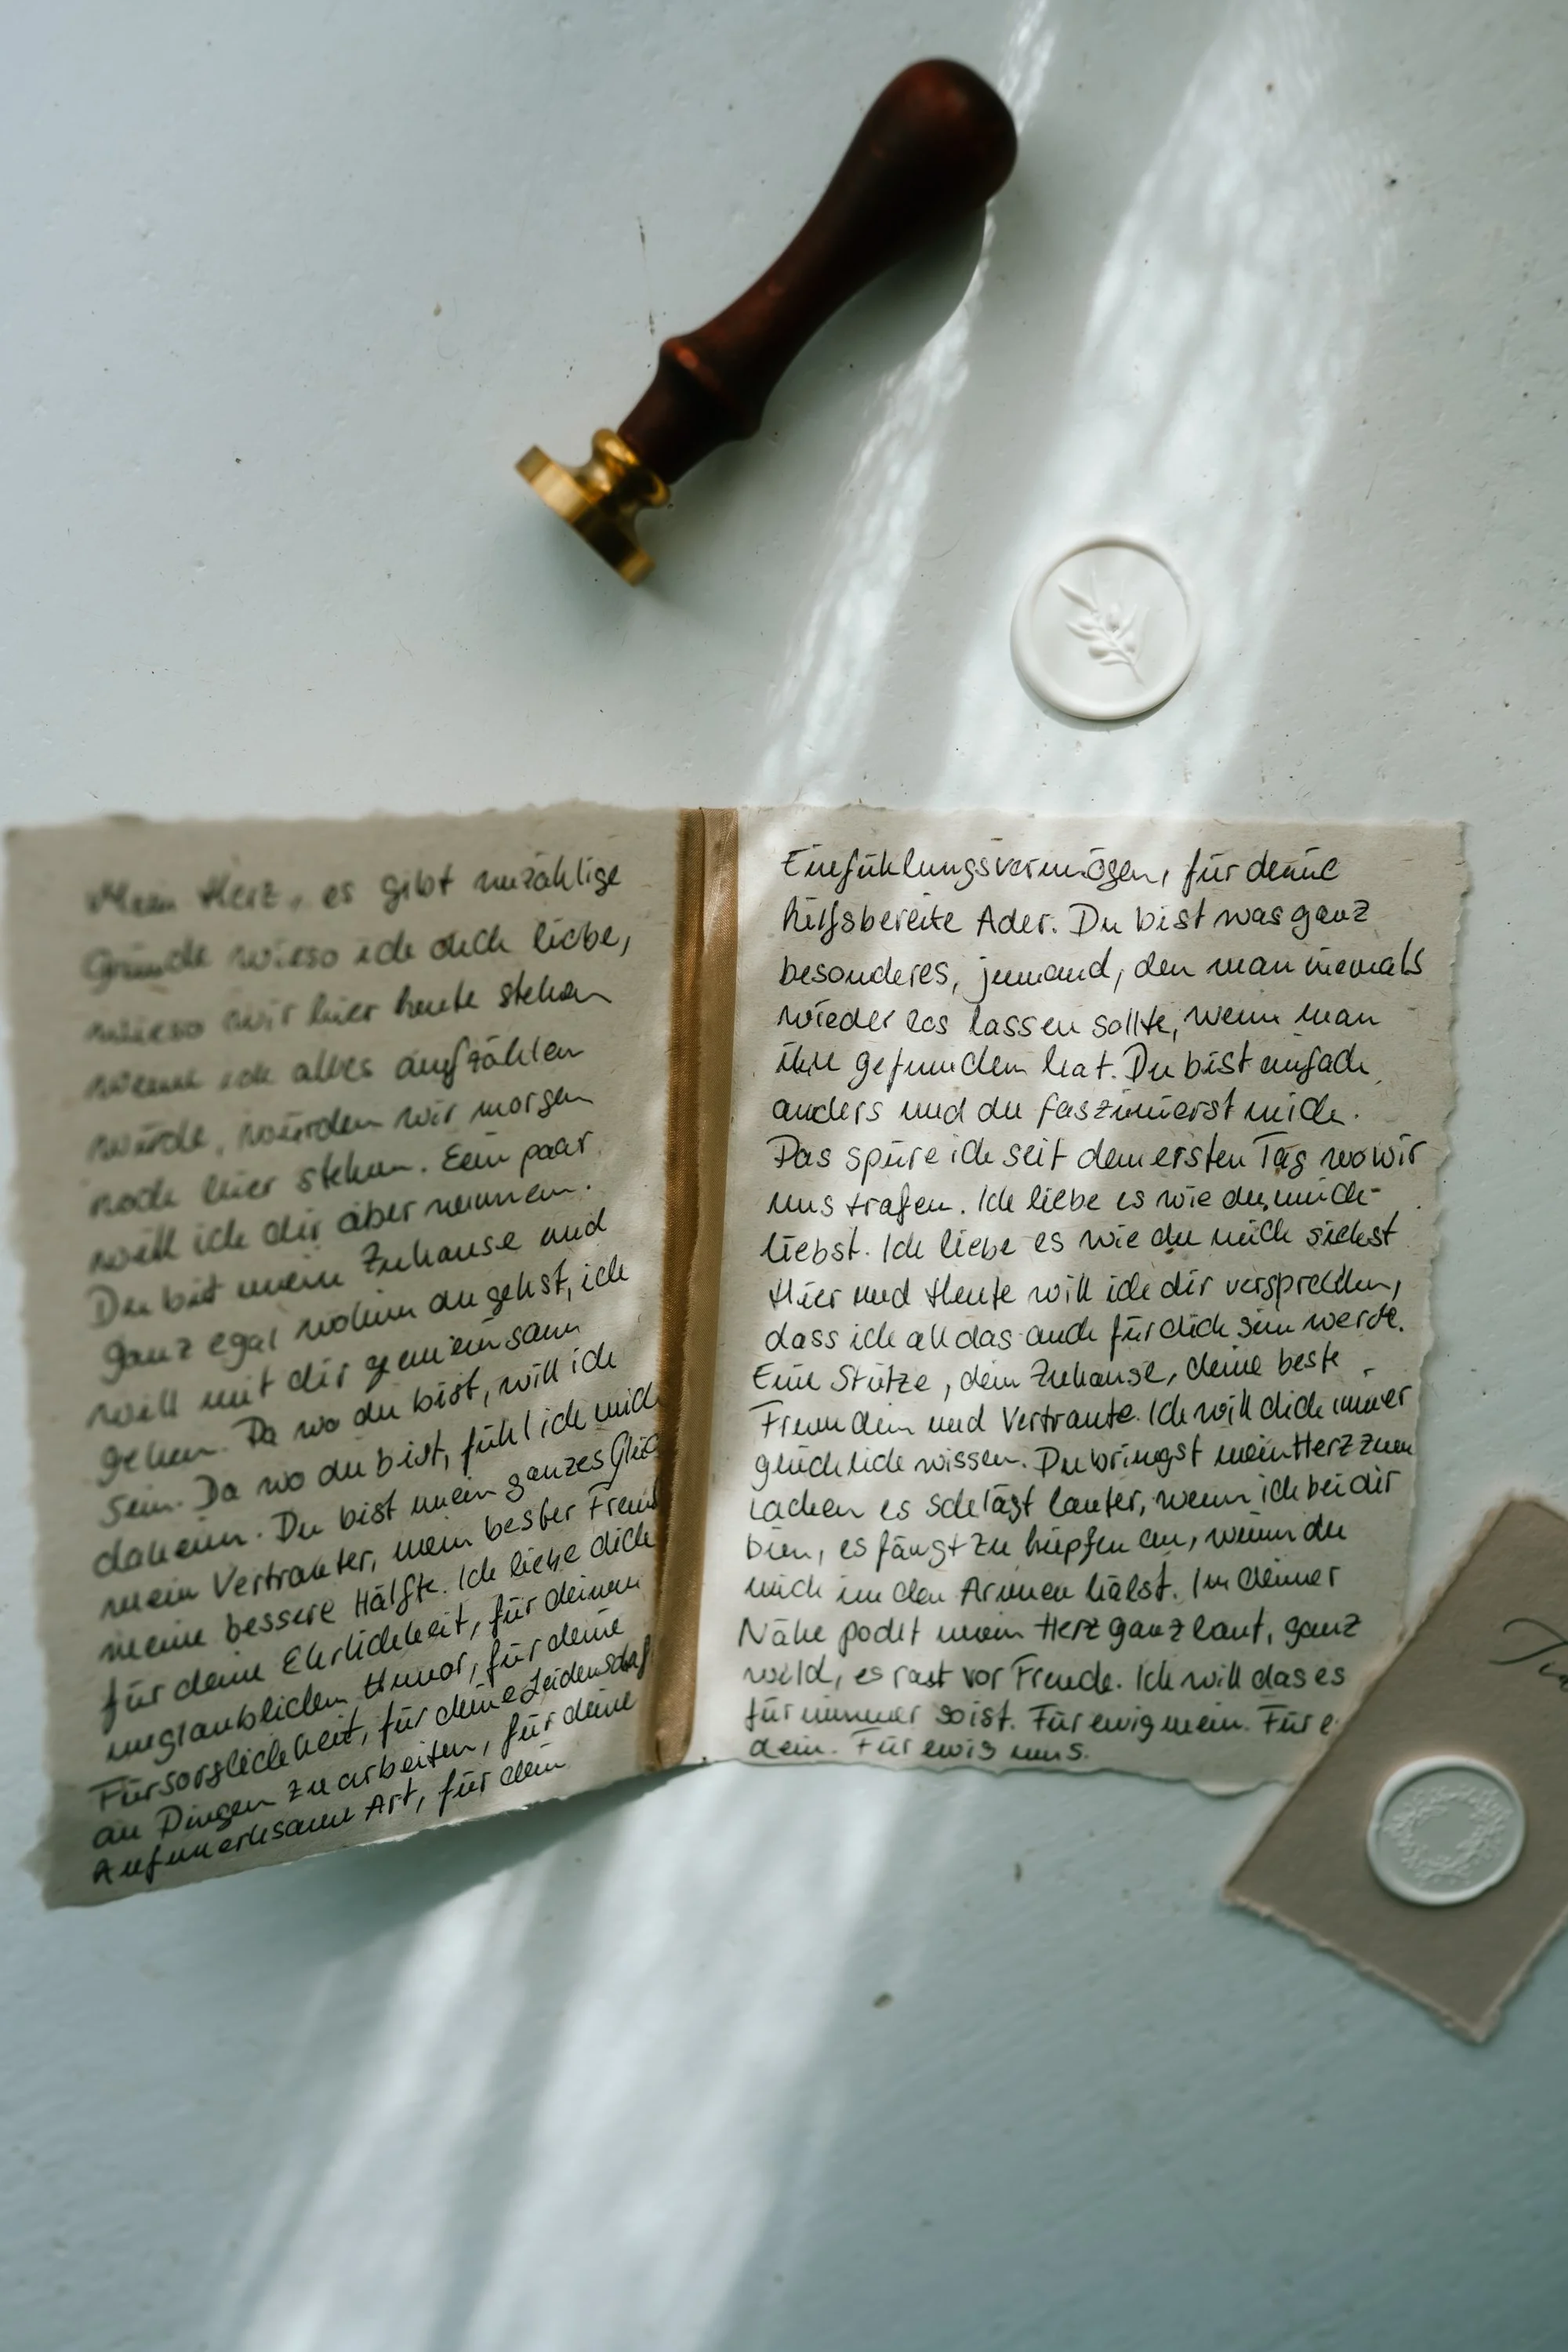 Mein Herz, es gibt unzählige
Gründe wieso ich dich liebe,
wieso wir hier heute stehen
wenn ich alles aufzählen
würde, würden wir morgen
noch hier stehen. Ein paar
will ich dir aber nennen.
Du bist mein Zuhause und
ganz egal wohin du gehst, ich
will mit dir gemeinsam
gehen. Da wo du bist, will ich
sein. Da wo du bist, fühl ich mich
daheim. Du bist mein ganzes Glü
mein Vertrauter, mein bester Freund
meine bessere Hälfte. Ich liebe dich
für deine Ehrlichkeit, für deinen
unglaublichen Humor, für deine
Fürsorglichkeit, für deine Leidenschaf
an Dingen zu arbeiten, für deine
Aufmerksame Art, für dein
Einfühlungsvermögen, für deine
hilfsbereite Ader. Du bist was ganz
besonderes, jemand, den man niemals
wieder los lassen sollte, wenn man
ihn gefunden hat. Du bist einfach
anders und du faszinierst mich.
Das spüre ich seit dem ersten Tag wo wir
uns trafen. Ich liebe es wie du mich
liebst. Ich liebe es wie du mich siehst
Hier und Heute will ich dir versprechen,
dass ich all das auch für dich sein werde.
Eine Stütze, dein Zuhause, deine beste
Freundin und Vertraute. Ich will dich immer
glücklich wissen. Du bringst mein Herz zum
Lachen es schlägt lauter, wenn ich bei dir
bin, es fängt zu hüpfen an, wenn du
mich in den Armen hälst. In deiner
Nähe pocht mein Herz ganz laut, ganz
wild, es rast vor Freude. Ich will das es
für immer so ist. Für ewig mein. Für e
dein. Für ewig uns.